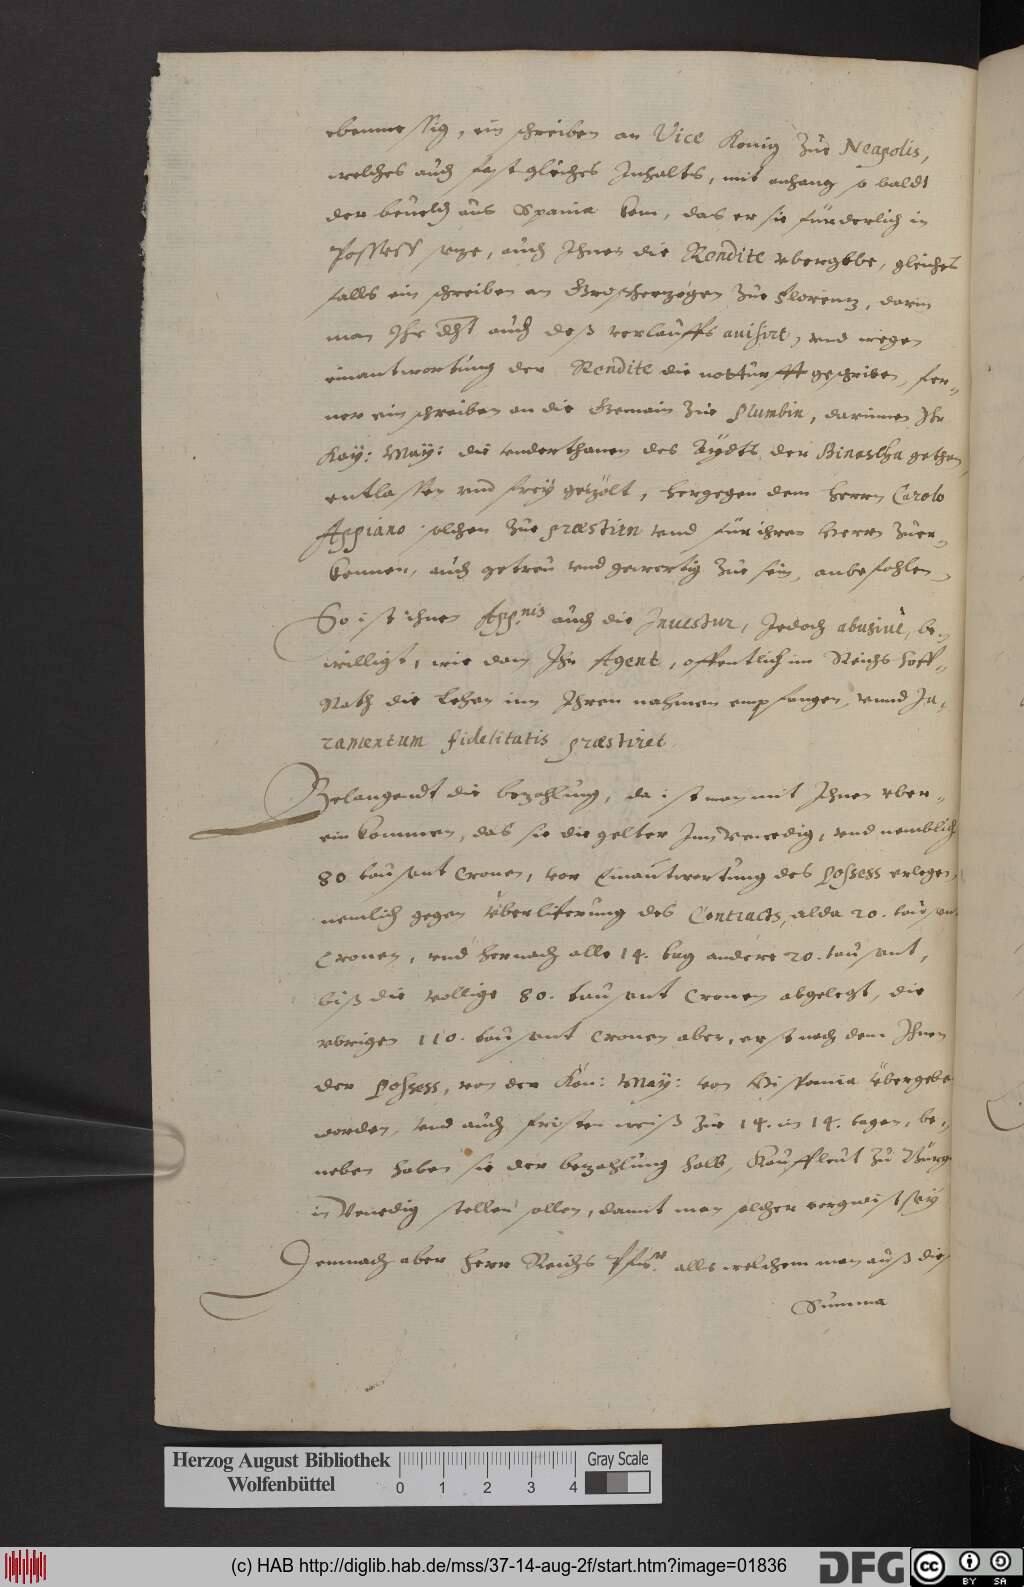 ebenmessig, ein schreiben an Vice König Züe Neapolis,
welches auch fast gleiches Inhalts, mit anhang so baldt
der beuelch aus Spania kem, das er sie fürderlich in
Possess seze, auch Ihnen die Rendite vbergebe, gleiches
falls ein schreiben an Grosherzogen Züe Florenz, darin
man Ihr dht auch deß verlauffs auisirt, vnd wegen
einantwortung der Rendite die notturfft geschriben, fer„
ner ein schreiben an die Gemain Züe Plumbin, darinnen Ihr
Kay: May: die vnderthanen des Aydts, der Binascha gethan,
entlassen vnd freÿ gezölt, hergegen dem Herrn Carolo
Appiano solchen Züe præstirn vnd für ihren Herrn Züer„
kennen, auch getreu vnd gewertig Züe sein, anbefohlen
So ist ihnen App:nis auch die Inuestur, Jedoch abusiuè, be„
willigt, wie dann Ihr Agent, offentlich im Reichs Hoff„
Rath die Lehen inn Ihren nahmen empfangen, vnnd Ju„
ramentum fidelitatis præstiret
Belangendt die bezahlung, da ist man mit Ihnen vber„
ein kommen, das sie die gelter Inn Venedig, vnd nemblich
80 tausent Cronen, vor Einantwortung des Possess erlegen,
nemlich gegen Vberliferung des Contracts, alda 20. tausent
Cronen, vnd hernach alle 14. tag andere 20. tausent,
biß die völlige 80. tausent Cronen abgelegt, die
vbrigen 110. tausent Cronen aber, erst nach dem Ihnen
der Possess, von der Kön: May: von Hispania Vbergeben
worden, vnd auch fristen weiß Züe 14. in 14. tagen, be„
neben haben sie der bezahlung halb, Kauffleut Zu Bürgen
in Venedig stellen sollen, damit man solcher vergwist seÿ
Demnach aber Herr Reichs Pfen:r alls welchem man auß dieser
Summa
Herzog August Bibliothek
Wolfenbüttel
0 1 2 3 4
Gray Scale
(c) HAB http://diglib.hab.de/mss/37-14-aug-2f/start.htm?image=01836
DFG
cc BY SA